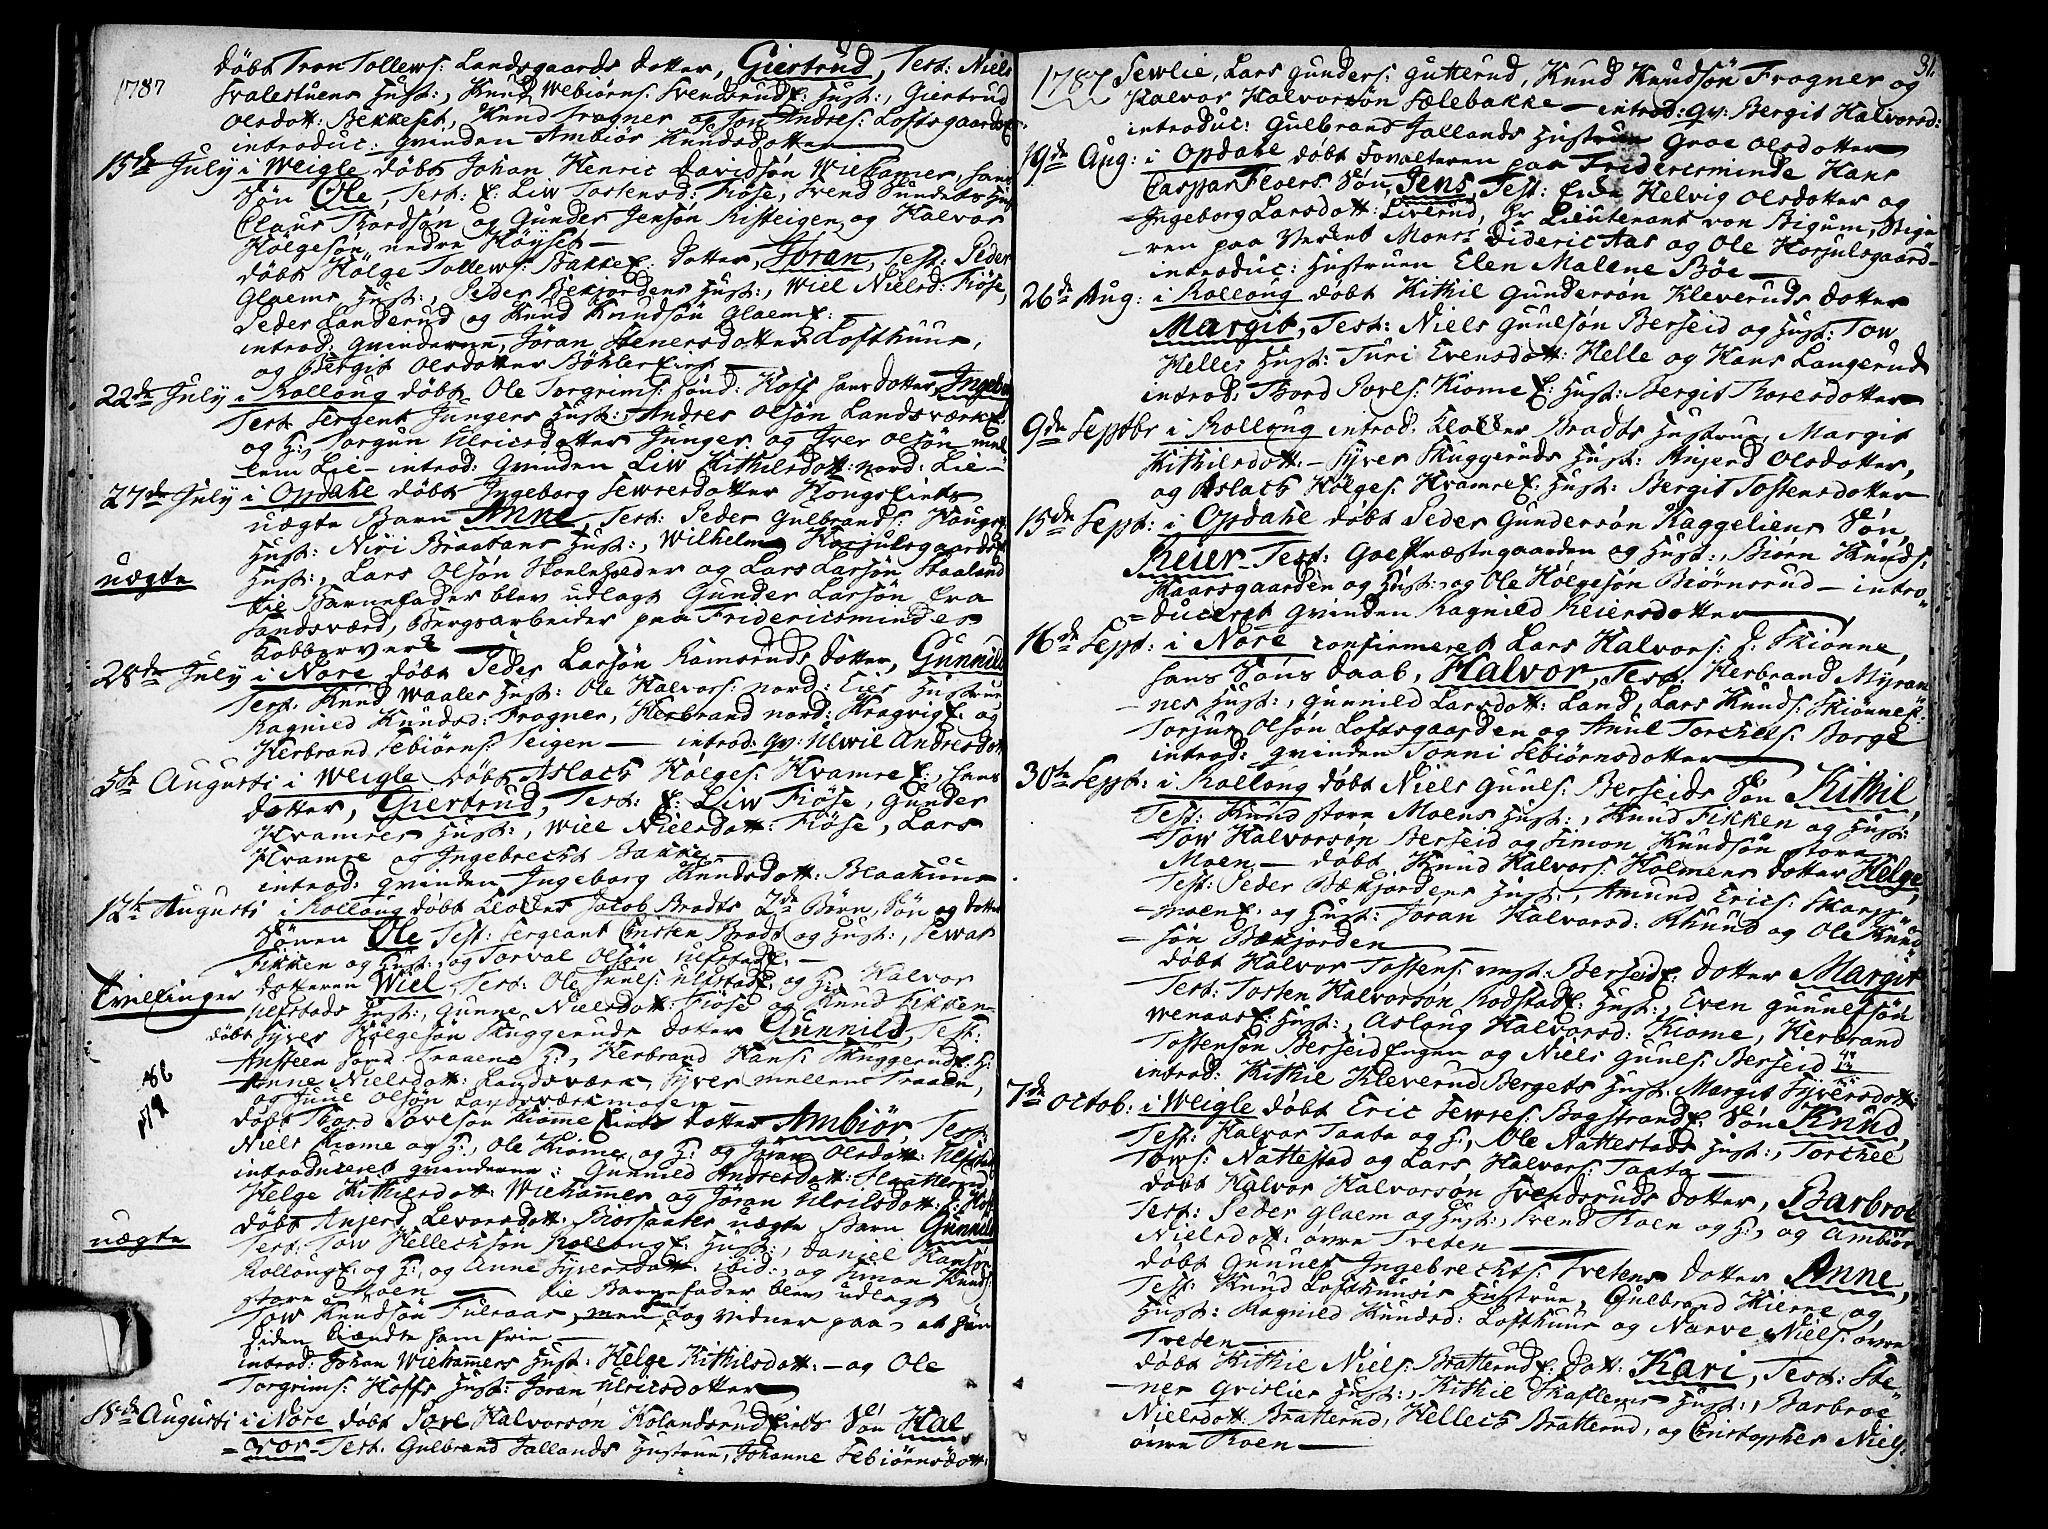 1787
döbt Tron Tollews: Landsgaards dotter, Giertrud, Test: Niels
Svalestuens Hust:, Knud Webiörns: Svendsrud E: Hust:, Giertrud
Olsdott: Bekkeset, Knud Fragner og Jon Andres: Loftsgaards E
introduc: qvinden Ambiör Knudsdotter
15de July i Weigle döbt Johan Henric Davidsön Wiehamer, hans
Sön Ole, Test: E: Liw Tostensd: Fiöse, Svend Sundets Hust
Claus Thordsön og Gunder Jensön Risteigen, og Halvor
Hölgesön nedre Höyset
döbt Hölge Tollews: Bakke E: dotter, Joran, Test: Peder
Glaems Hust:, Peder Bekjordens Hust:, Wiel Nielsd: Fiöse,
Peder Landerud og Knud Knudsön Glaem E:
introd: qvinderne, Jöran Stenersdotter Lofthuus,
og Bergit Olsdotter Böhler Eiet
22de July i Rolloug döbt Ole Torgrims: sönd: Hoff hans dotter, Ingebor
Test: Sergent Jungers Hust:, Andres Olsön Landsværk E:
og H: Torgun Ulricsdotter Junger og Iver Olsön mel
lem Lie - introd: Qvinden Liw Kithilsdott: nord: Lie -
27de July i Opdahl döbt Ingeborg Sewersdotter Kongs Eiets
uægte
uægte Barn Anne, Test: Peder Gulbrands: Kongs E
Hust: Niri Braabans Hust:, Wilhelm Horjulsgaards
Hust:, Lars Olsön Skoleholder og Lars Larsön Staaland
til Barnefader blev udlagt Gunder Larsön fra
Sandsværd, Bergsarbeider paa Fridericsmindes
Kobberverk
28de July i Nore döbt Peder Larsön Ramsruds dotter, Gunnild
Test: Knud Waales Hust: Ole Halvors: nord: Eies Hustrue
Ragnild Knudsd: Fragner, Herbrand nord: Kragvig E: og
Herbrand Tebiörns: Teigen - introd: qv: Ulwil Andresdott
5te Augusti i Weigle döbt Aslach Hölges: Hvamre E:, hans
dotter, Giertrud, Test: E: Liw Fiöse, Gunder
Hvamres Hust:, Wiel Nielsdott: Fiöse, Lars
Hvamre og Ingebrecht Bakke
introd: qvinden Ingeborg Knudsdott: Blaahuus
12te Augusti i Rolloug döbt Jacob Bradts 2de Börn, Sön og dotter
Sönen Ole Test: Sergeant Cristen Bradt og Hust:, Sewat
Fikken og Hust: og Torval Olsön Ulfstad E: -
Tvillinger
dotteren Wiel Test: Ole Juuls: Ulfstad E: og H: Halvor
Ulfstads Hust:, Gunne Nielsdott: Fiöse og Knud Fikken -
döbt Syver Hölgesön Skuggeruds dotter Gunnild, Test:
Ansteen sönd Traaens H:, Herbrand Hans: Skuggerud E: H:
Anne Nielsdott: Landsværk, Syver mellem Traaen,
og June Olsön Landsværkmoen
döbt Thord Povelsön Kiomme Eiets dotter Ambiör, Test:
Niels Kiome og H:, Ole Kiome og H: og Joran Olsdott: Ulfstad
introduceret qvinderne: Gunnild Andresdott: Slaatterud
Helge Kithilsdott: Wiehammer og Jöran Ulrilsdott: s: Hof
döbt Anjerd Levorsdott: Biorsaaters uægte Barn Gunnild
uægte
Test: Tow Hellechsön Rolloug E: Hust:, Daniel Hansön
Rolloug E: og H:, og Anne Syversdott: ibid:, og Simon Knuds:
store Moen - til Barnefader blev udlagt
Tow Knudsön Fulsaas, men og vidner paa, at hun
siden kiendte ham frie
introd: Johan Wiehammers Hust: Helge Kithilsdott: - og Ole
Torgrims: Hoffs Hust: Joran Ulricsdotter
18de Augusti i Nore döbt Povl Halvorsön Kolandsrud Eiets Sön Hal
vor Test: Gulbrand Jallands Hustrue, Johanne Tebiörnsdott:
31.
1787 Sewlie, Lars Gunders: Gutterud, Knud Knudsön Fragner og
Halvor Halvorsön Sælebakke - introd: qv: Bergit Halvorsd:
introduc: Gulbrand Jallands Hustrue Groe Olsdotter
19de Aug: i Opdahl döbt Forvalteren paa Fridericsminde Hans
Caspar Floers Sön, Jens, Test: Helvig Olsdotter og
Ingeborg Larsdott: Liverud, Hr Lieutenant von Bigum, Stige
ren paa Verket Monsr Dideric Aas og Ole Horjulsgaard -
introduc: Hustruen Elen Malene Böe
26de Aug: i Rolloug döbt Kithil Gundersön Kleveruds dotter
Margit, Test: Niels Guulsön Berseid og Hust: Tow
Helles Hust: Turi Evensdott: Helle og Hans Langerud
introd: Thord Povels: Kiome E: Hust: Bergit Thoresdotter
9de Septbr i Rolloug introd: Bradts Hustrue Margit
Kithilsdott: - Syver Skuggeruds Hust: Anjerd Olsdotter,
og Aslach Hölges: Hvamre E: Hust: Bergit Tostensdotter
15de Sept: i Opdahl döbt Peder Gundersön Kaggeliens Sön,
Reier - Test: Goe Præstegaarden og Hust:, Biörn Knuds:
Skaarsgaarden og Hust: og Ole Hölgesön Biörnsrud - intro
duceret qvinden Ragnild Reiersdotter
16de Sept: i Nore confirmeret Lars Halvors: s: Skiönne,
hans Söns daab, Halvor, Test: Herbrand Myran
nes Hust:, Gunnild Larsdott: Land, Lars Knuds: Skiönne E:
Torjus Olsön Loftsgaarden og Anul Torchels: Borge
introd: qvinden Tonni Tebiörnsdotter
30te Sept: i Rolloug döbt Niels Guuls: Berseids Sön Kithil,
Test: Knud store Moens Hust:, Knud Fikken og Hust:
Tow Halvorsön Berseid og Simon Knudsön store
Moen - döbt Knud Halvors: Holmens dotter Helge,
Test: Peder Bækjordens Hust:, Amund Erics: Skarp
moen E: og Hust: Joran Halvorsd: Rhuud og Ole Knud
sön Bækjorden
döbt Halvor Tostens: vest: Berseid E: dotter Margit
Test: Tosten Halvorsön Rodstad E: Hust:, Even Gunnelsön
Wenaas E: Hust:, Aslaug Halvorsd: Kiome, Herbrand
Tostensön Berseid Engen og Niels Guuls: Berseid
introd: Kithil Kleverud Bergets Hust: Margit Syversdott:
7de Octob: i Weigle döbt Eric Sewres: Bogstrand E: Sön Knud,
Test: Halvor Taata og H:, Ole Nattestads Hust:, Torchel
Tows: Nattestad og Lars Halvors: Taata
döbt Halvor Halvorsön Svendsruds dotter, Barbroe
Test: Peder Glaem og Hust:, Svend Koen og H:, og Ambiör
Nielsdott: övre Treten
döbt Gunner Ingebrechts: Tretens dotter Anne,
Test: Knud Lofthuusis Hustrue, Gulbrand Kierne og
Hust: Ragnild Knudsd: Lofthuus og Narve Niels: övre
Treten
döbt Kithil Niels: Bratterud E: Dott: Kari, Test: Ste
ner Grislies Hust:, Kithil Skaflems Hust:, Barbroe
Nielsdott: Bratterud, Hellech Bratterud, og Cristopher Niels:
övre Koen